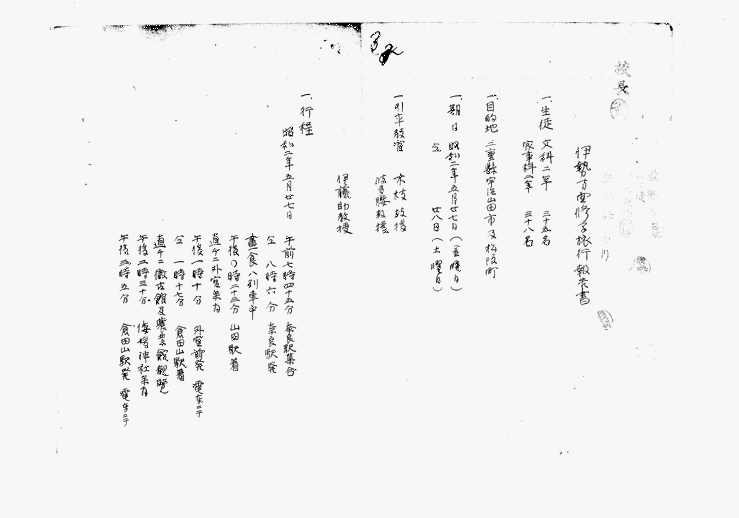 校長
伊勢方面修学旅行報告書
一、生徒 文科二年 三十五名
家事科二年 三十八名
一、目的地 三重縣宇治山田市及松阪町
一、期日 昭和二年五月廿七日(金曜日)
仝 廿八日(土曜日)
一、引率教官 木枝教授
波多腰教授
伊藤助教授
一、行程
昭和二年五月廿七日
午前七時四十五分 奈良駅集合
仝 八時六分 奈良駅発
晝食ハ列車中
午後〇時二十三分 山田駅着
直チニ外宮参拝
午後一時十分 外宮前発 電車ニテ
仝 一時十七分 倉田山駅着
直チニ徴古館及農業館観覧
午後二時三十分 倭姫神社参拝
午後三時五分 倉田山駅発 電車ニテ